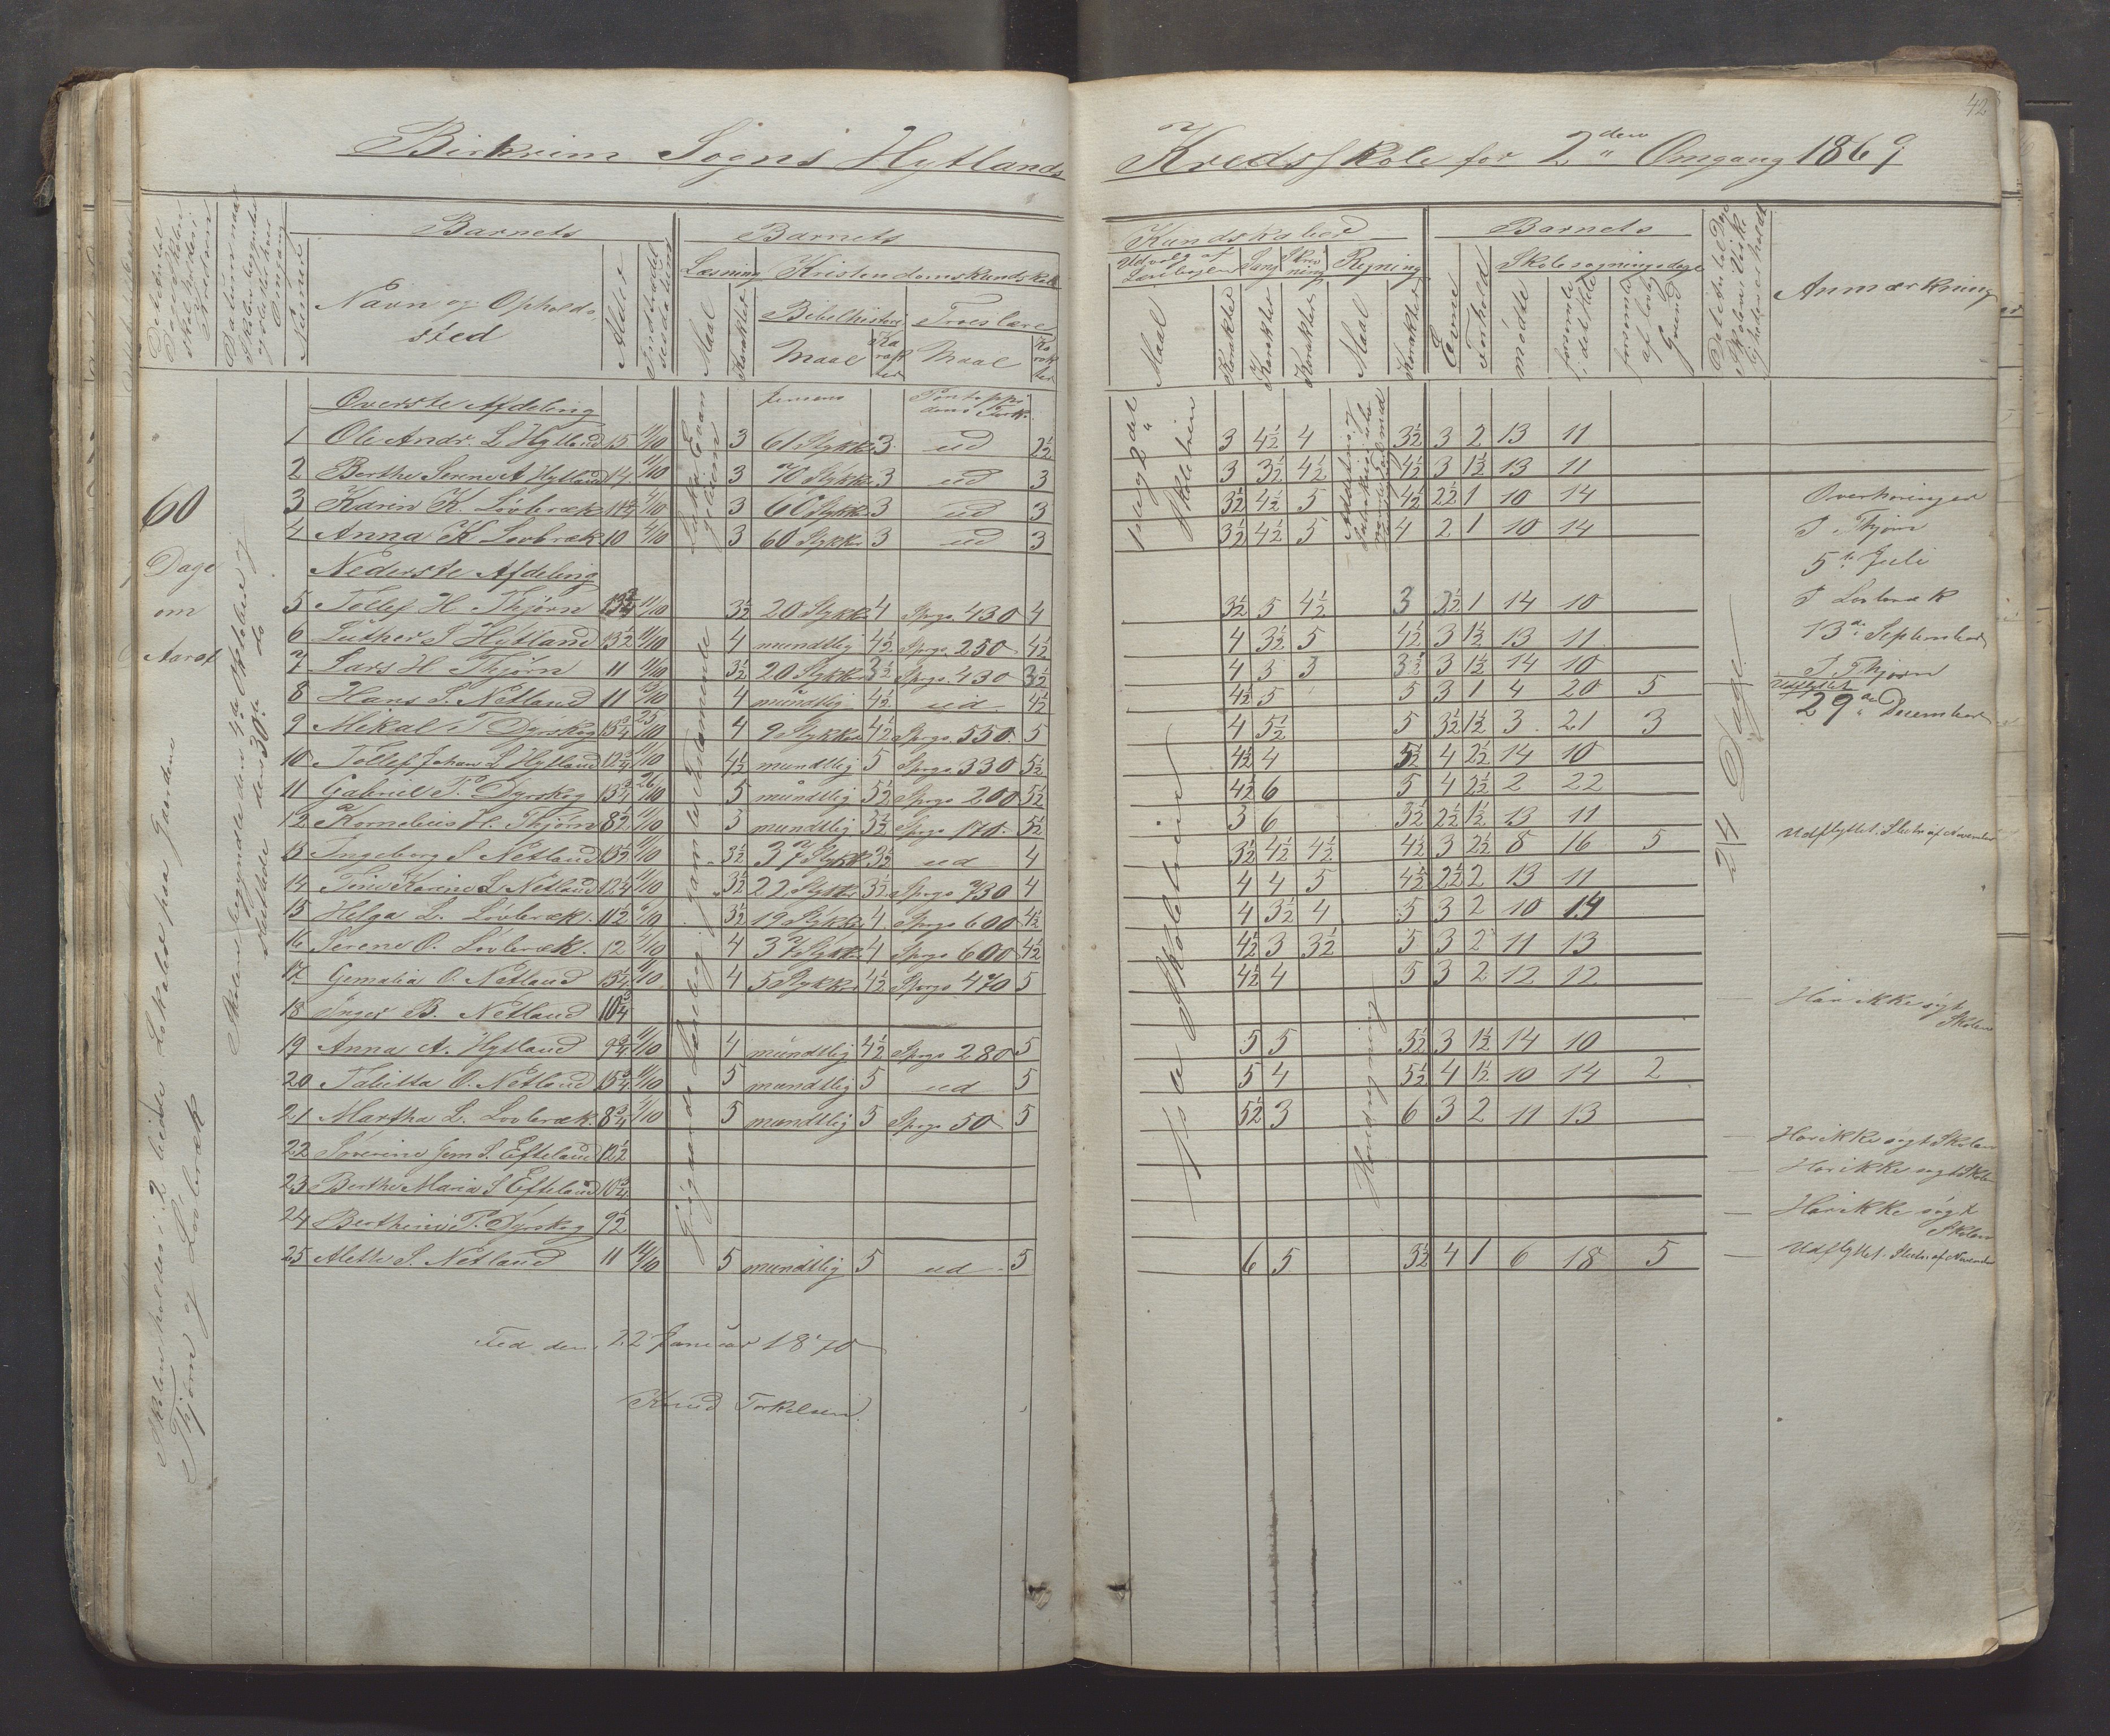 42
Birkrim Sogns Hytlands Kredsskole for 2den Omgang 1869
Barnets
Barnets
Kundskaber
Barnets
Læsning
Kristendomskundskab
Udvalg af Læsebogen
Sang
Skrivning
Regning
Skolesøgningsdage
Anmærkning
Navn og Opholdssted
Alder
Maal
Karakter
Bibelhistorie
Troeslære
Maal
Karakter
Maal
Karakter
Maal
Karakter
Karakter
Karakter
Maal
Karakter
Evne
Forhold
mødte
forsømte i det Hele
forsømte af lovlig Grund
60
Dage
om
Aaret
Skolen begyndte den 4de Oktober og
sluttede den 30te do
Skolen holdes i 2 leiede Lokaler paa Gaardene
Thjørn og Lovbræk
Øverste Afdeling
1 Ole Andr. L Hytland 15 11/10 3 61 Stykker 3 ud 2½ 3 4½ 4 3½ 3 2 13 11
2 Berthe Serene A Hytland 14 11/10 3 70 Stykker 3 ud 3 3 3½ 4½ 4½ 3 1½ 13 11
3 Karen K. Lovbræk 11¾ 4/10 3 60 Stykker 3 ud 3 3½ 4½ 5 4½ 2½ 1 10 14
4 Anna K Lovbræk 10 4/10 3 60 Stykker 3 ud 3 3½ 4½ 5 4 2 1 10 14
Nederste Afdeling
5 Tollef H Thjørn 13¾ 11/10 3½ 20 Stykker 4 Sprgs. 430 4 3½ 5 4½ 3 3½ 1 14 10
6 Luther J Hytland 13½ 11/10 4 mundtlig 4½ Sprgs. 250 4½ 4 3½ 5 4½ 3 1½ 13 11
7 Lars H Thjørn 11 11/10 3½ 20 Stykker 3½ Sprgs. 430 3½ 4 3 3 3½ 3 1½ 14 10
8 Hans S. Netland 11 4 mundtlig 4½ ud 4½ 4½ 5 5 3 1 4 20 5 Udflyttet
9 Mekal T Dyrskog 13¾ 25/10 4 9 Stykker 4½ Sprgs. 550. 5 4 5½ 5 3½ 1½ 3 21 3
10 Tollef Johan L Hytland 12¾ 11/10 4½ mundtlig 5 Sprgs. 330 5½ 4½ 4 5½ 4 2½ 14 10
11 Gabriel T. Dyrskog 13¾ 26/10 5 mundtlig 5½ Sprgs 200 5½ 4½ 6 5 4 2½ 2 22
12 Kornelius H. Thjørn 8½ 11/10 5 mundtlig 5½ Sprgs 170. 5½ 3 6 3½ 2½ 1½ 13 11
13 Ingeborg S Netland 13½ 11/10 3½ 37 Stykker 3½ ud 4 3½ 4½ 4½ 4½ 3 2½ 8 16 5 Udflyttet. Slutn. af November
14 Tine Karine L Netland 12¼ 11/10 3½ 22 Stykker 3½ Sprgs 730 4 4 4 5 4½ 2½ 2 13 11
15 Helga L. Lovbræk. 11½ 3½ 19 Stykker 4 Sprgs 600 4½ 4 3½ 4 5 3 2 10 14
16 Serene O. Lovbræk. 12 4/10 4 37 Stykker 4 Sprgs 600 4½ 4½ 3 3½ 5 3 2 11 13
17 Gemalia O. Netland 13¼ 11/10 4 5 Stykker 4½ Sprgs 470 5 4½ 4 5 3 2 12 12
18 Inger B. Netland 10¾ Har ikke søgt Skolen
19 Anna A. Hytland 9¾ 11/10 4 mundtlig 4½ Sprgs 280 5 5 5 5½ 3 1½ 14 10
20 Tabitta O. Netland 15¾ 11/10 5 mundtlig 5 ud 5 5 4 5½ 4 1½ 10 14 2
21 Martha L. Lovbræk. 8¾ 5 mundtlig 5 Sprgs 50 5 5½ 3 6 3 2 11 13
22 Severine Gem S. Efteland 12½ Har ikke søgt Skolen
23 Berthe Maria S Efteland 10¾ Har ikke søgt Skolen
24 Berthine T. Dyrskog 9½ Har ikke søgt Skolen
25 Alette S. Netland 11 11/10 5 mundtlig 5 ud 5 6 5 3½ 4 1 6 18 5 Udflyttet. Slutn. af November
Lukas Evangelium
Jensens
Pontoppidans Fork.
Gjigaande Læsning gamle Testamente
1ste og 2det Skoletrin
1ste Skoletrin
Hovedregning
24 Dage
Overhøringer
P. Thjørn
5te Juli
P Lovbræk
13de September
P. Thjørn
29de December
Fed den 22 Januar 1870
Knud Torkelsen.